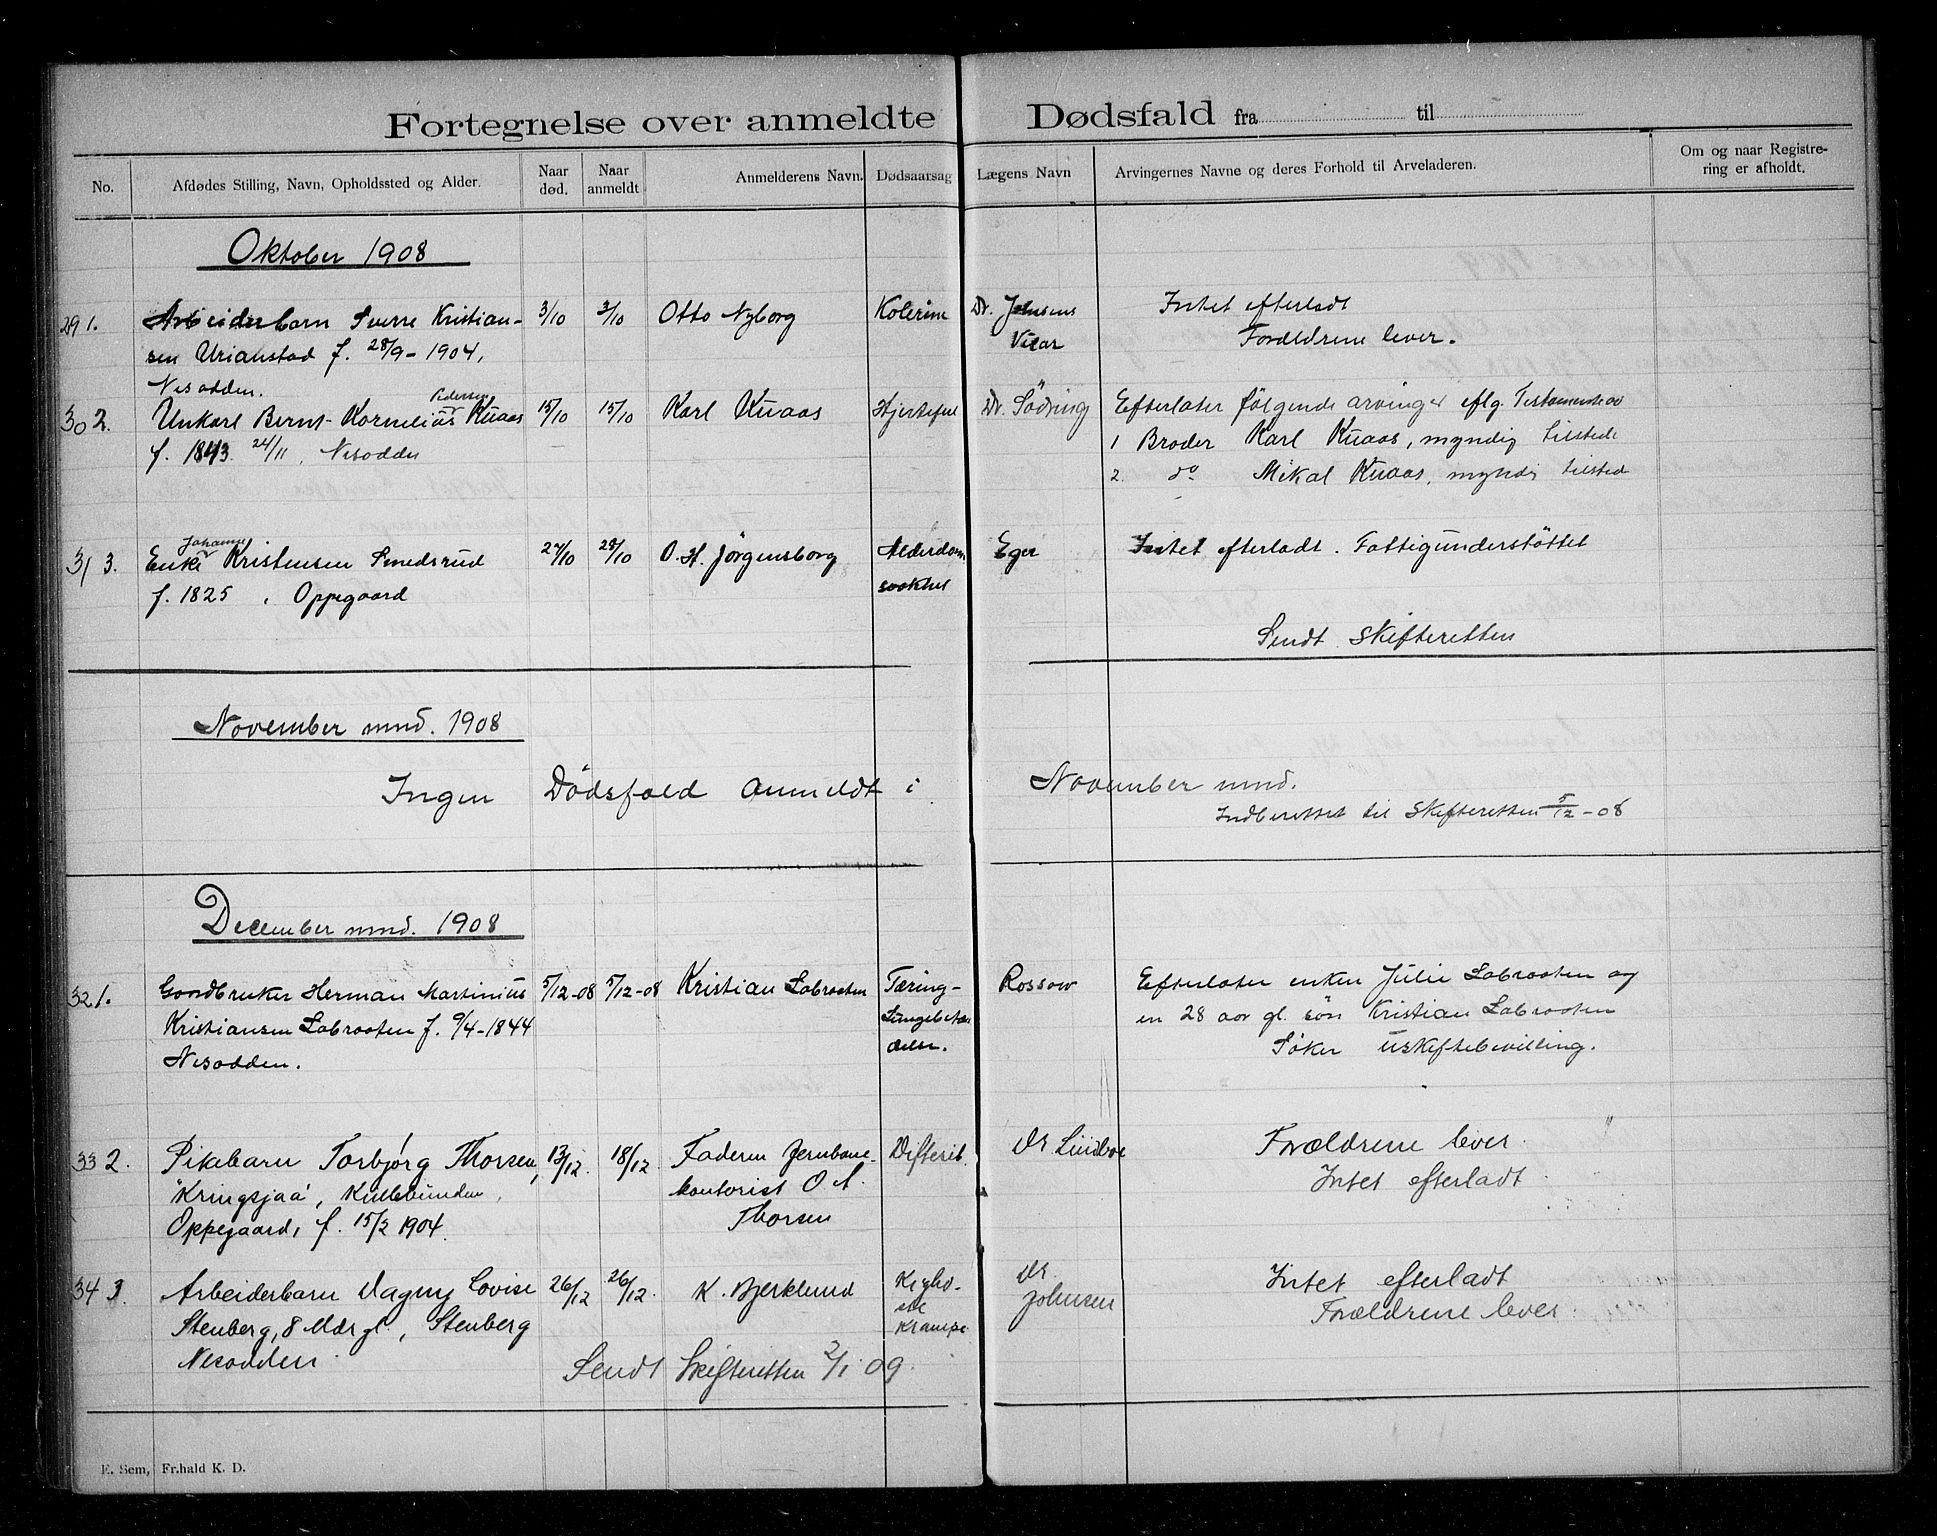 Fortegnelse over anmeldte Dødsfald fra til
No. Afdødes Stilling, Navn, Opholdssted og Alder. Naar død. Naar anmeldt Anmelderens Navn. Dødsaarsag Lægens Navn Arvingernes Navne og deres Forhold til Arveladeren. Om og naar Registrering er afholdt.
Oktober 1908
29 1. Arbeiderbarn Sverre Kristian- 3/10 3/10 Otto Nyborg Kolerine Dr. Johnsens Intet efterladt
sen Urianstad f. 28/9 - 1904, Vicar Forældrene lever.
Nesodden.
Pedersen
30 2. Unkarl Bernt Kornelius Kuaas 15/10 15/10 Karl Kuaas Hjertefeil Dr. Södring Efterlater følgende arvinger eflg.
f. 1843 24/11, Nesodden 1 Broder Karl Kuaas, myndig tilstede
2. do Mikal Kuaas, myndig tilsted
Johanne
31 3. Enke Kristensen Smedsrud 27/10 28/10 O. H. Jörgensborg Alderdom Eger Intet efterladt. Fattigunderstöttet
f. 1825, Oppegaard svakhet
Sendt Skifteretten
November mnd. 1908
Ingen Dödsfald anmeldt i November mnd.
Indberettet til Skifteretten 5/12 - 08
December mnd. 1908
32 1. Gaardbruker Herman Martinius 5/12-08 5/12-08 Kristian Labraaten Tæring- Rossow Efterlater enken Julie Labraaten og
Kristiansen Labraaten f. 9/4-1844 Lungebetæn en 28 aar gl. sön Kristian Labraaten
Nesodden. delse. Söker uskiftebevilling.
33 2. Pikebarn Torbjørg Thorsen, 13/12. 18/12 Faderen Jernbane- Difterit. Dr Lindboe Forældrene lever.
"Kringsjaa", Kullebunden, kontorist O. A. Intet efterladt
Oppegaard, f. 15/2 1904. Thorsen
34 3. Arbeiderbarn Dagny Lovise 26/12 26/12. K. Bjerklund Kighoste Dr Intet efterladt
Stenberg, 8 Mdr gl., Stenberg Krampe Johnsen Forældrene lever.
Nesodden.
Sendt Skifteretten 2/1 09.
E. Sem, Fr.hald K. D.